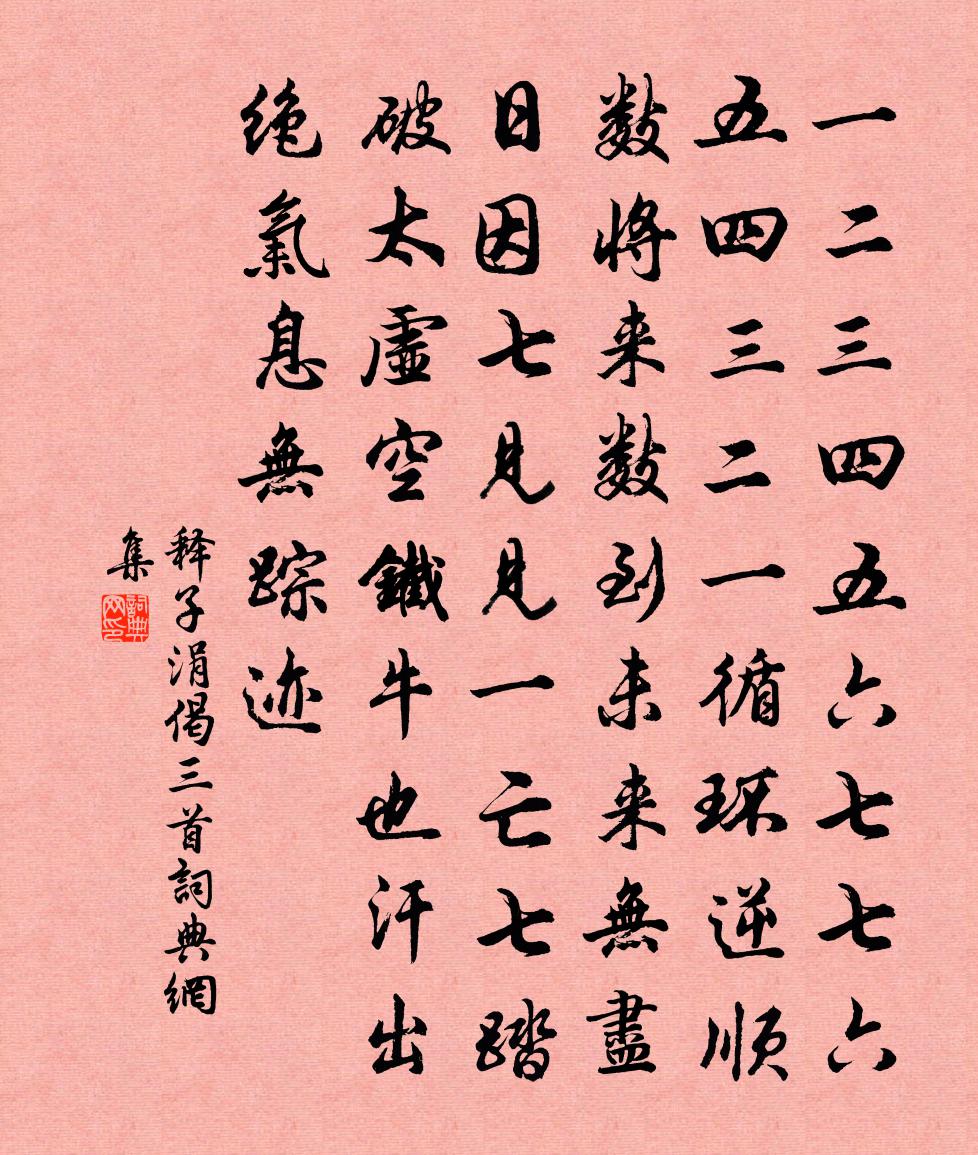 一二三四五六七七六
五四三二一循环逆顺
数将来数到未来無盡
日因七見見一亡七踏
破太虛空鐵牛也汗出
绝氣息無踪迹
释子涓偈三首詞典網
集
詞典
网印